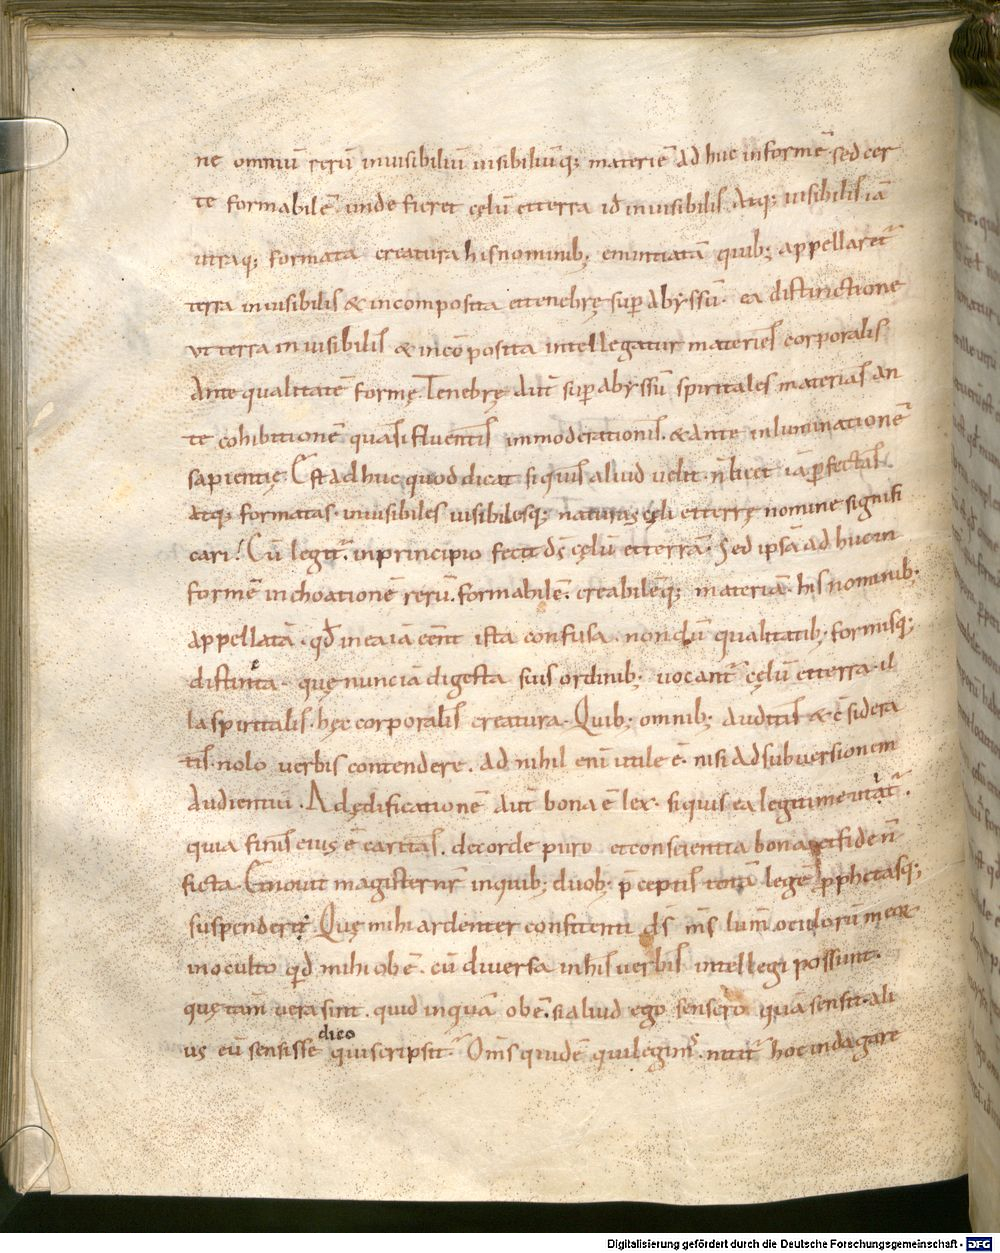 ne omniū rerū inuisibiliū uisibiliūq; materiē ad huc informē sed cer
te formabilē. unde fieret cęlū et terra id inuisibilis. Atq; uisibilis iā
utraq; formata creatura his nominib; enuntiatā quib; appellaret̄
terra inuisibilis & incomposita et tenebrę sup abyssū. ea distinctione
ut terra inuisibilis & incōposita intellegatur materies corporalis
Ante qualitatē formę. Tenebrę aut̄ sup abyssū spiritales materias an
te cohibitionē quasi fluentis inmoderationis. & ante inluminationē
sapientię. Est ad huc quod dicat si quis aliud uelit. n̄ licet iā pfectas
atq; formatas. inuisibiles uisibilesq; naturas cęli et terrę nomine signifi
cari. Cū legit̄. in principio fecit d̄s cęlū et terrā. Sed ipsā ad huc in
formē inchoationē rerū. formabilē. creabilēq; materiā. his nominib;
appellatā. qd̄ in ea iā eēnt ista confusa. nondū qualitatib; formisq;
distincta. quę nunc iā digesta suis ordinib; uocant̄ cęlū et terra. il
la spiritalis. hęc corporalis creatura. Quib; omnib; auditis & c̄sidera
tis. nolo uerbis contendere. ad nihil eni utile ē. nisi ad subuersionem
audientiū. Ad ędificationē aut̄ bona ē lex. si quis ea legitime utat̄.
quia finis eius ē caritas. de corde puro et conscientia bona et fide n̄
ficta. Et nouit magister nr̄ in quib; duob; p̄ceptis totā legē pphetasq;
suspenderit. Quę mihi ardenter confitenti d̄s m̄s lum̄ oculorū meor̄
in oculto qd̄ mihi obē. cū diuersa in his uerbis intellegi possunt.
quę tam̄ uera sint. quid inquā obē. si aliud ego sensero quā sensit. ali
us eū sensisse dico qui scripsit. Om̄s quidē qui legim̄. nitit̄ hoc indagare
Digitalisierung gefördert durch die Deutsche Forschungsgemeinschaft - DFG